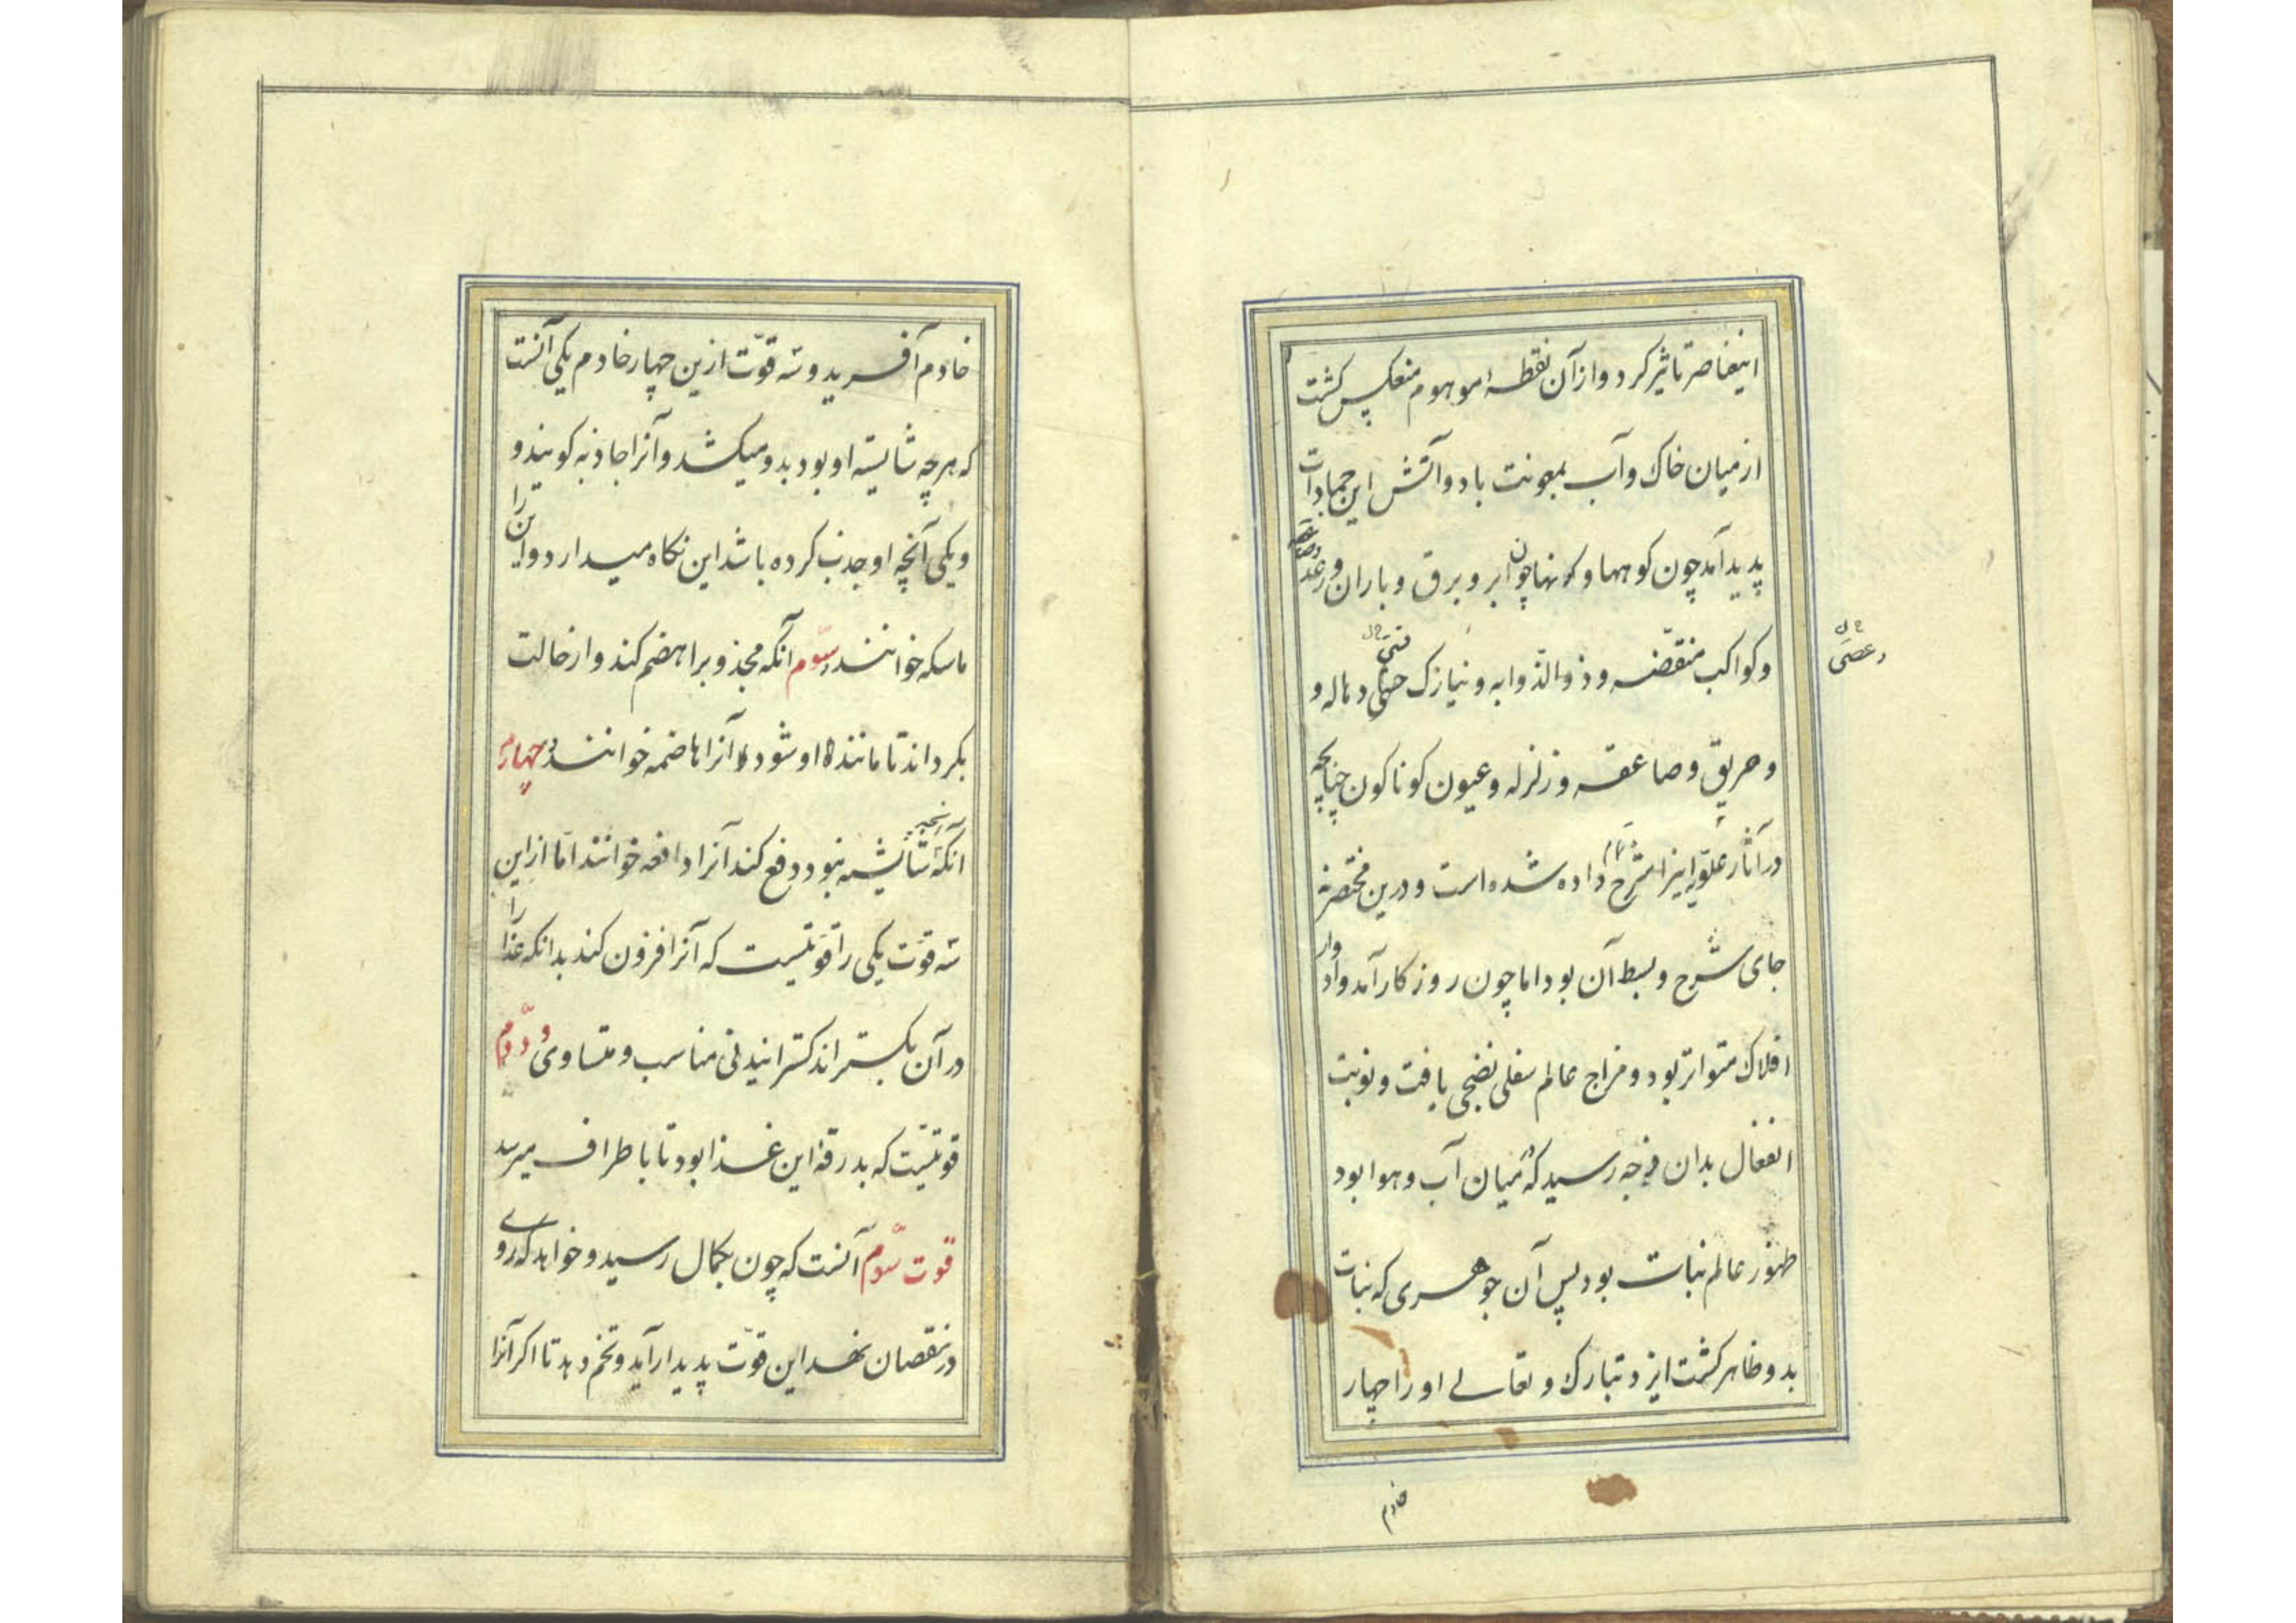 اینعناصر تاثیر کرد و از آن نقطه موهوم منعکس کشت
از میان خاک و آب بمعونت باد و آتش این جمادات
پدید آمد چون کوهها و کانها چون ابر و برق و باران و رعد
و کواکب منقضه و ذو الذوابه و نیازک و هاله و
و حریق و صاعقه و زلزله و عیون کوناکون چنانچه
در آثار علویه اینرا شرح داده شده است و درین مختصر نه
جای شرح و بسط آن بود اما چون روزکار آمد و ادوار
افلاک متواتر بود و مزاج عالم سفلی نضجی یافت و نوبت
انفعال بدان فرجه رسید که میان آب و هوا بود
ظهور عالم نبات بود پس آن جوهری که نبات
بدو ظاهر کشت ایزد تبارک و تعالے او را چهار
خادم
خادم آفرید و سه قوّت ازین چهار خادم یکی آنست
که هرچه شایسته او بود بدو میکشد و آنرا جاذبه کویند و
و یکی آنچه او جذب کرده باشد این نکاه میدارد و این را
ماسکه خوانند و سّوم آنکه مجذوبرا هضم کند و از حالت
بکرداند تا مانند او شود و آنرا هاضمه خوانند و چهارم
آنکه آنچه شایسته نبود دفع کند آنرا دافعه خوانند امّا از این
سه قوّت یکی را قوّتیست که آنرا افزون کند بدانکه غذا را
در آن بکستراند کسترانیدنی مناسب و متساوی و دوّم
قوتیست که بدرقه این غذا بود تا باطراف میرسد
قوت سّوم آنست که چون بکمال رسید و خواهد که روے
در نقصان نهد این قوّت پدیدار آید و تخم دهد تا اکر آنرا